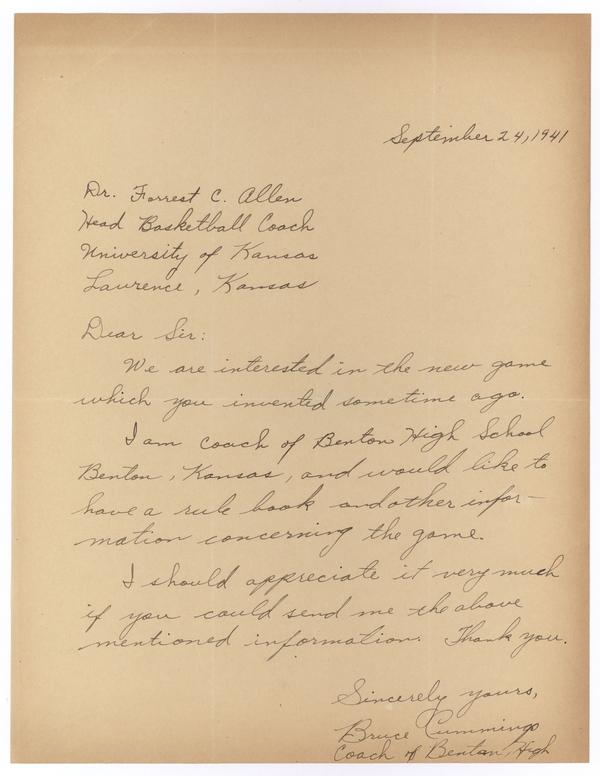 September 24, 1941
Dr. Forrest C. Allen
Head Basketball Coach
University of Kansas
Laurence, Kansas
Dear Sir:
We are interested in the new game
which you invented sometime ago.
I am coach of Benton High School
Benton, Kansas, and would like to
have a rule book and other infor-
mation concerning the game.
I should appreciate it very much
if you could send me the above
mentioned information. Thank you.
Sincerely yours,
Bruce Cummings
Coach of Benton, High